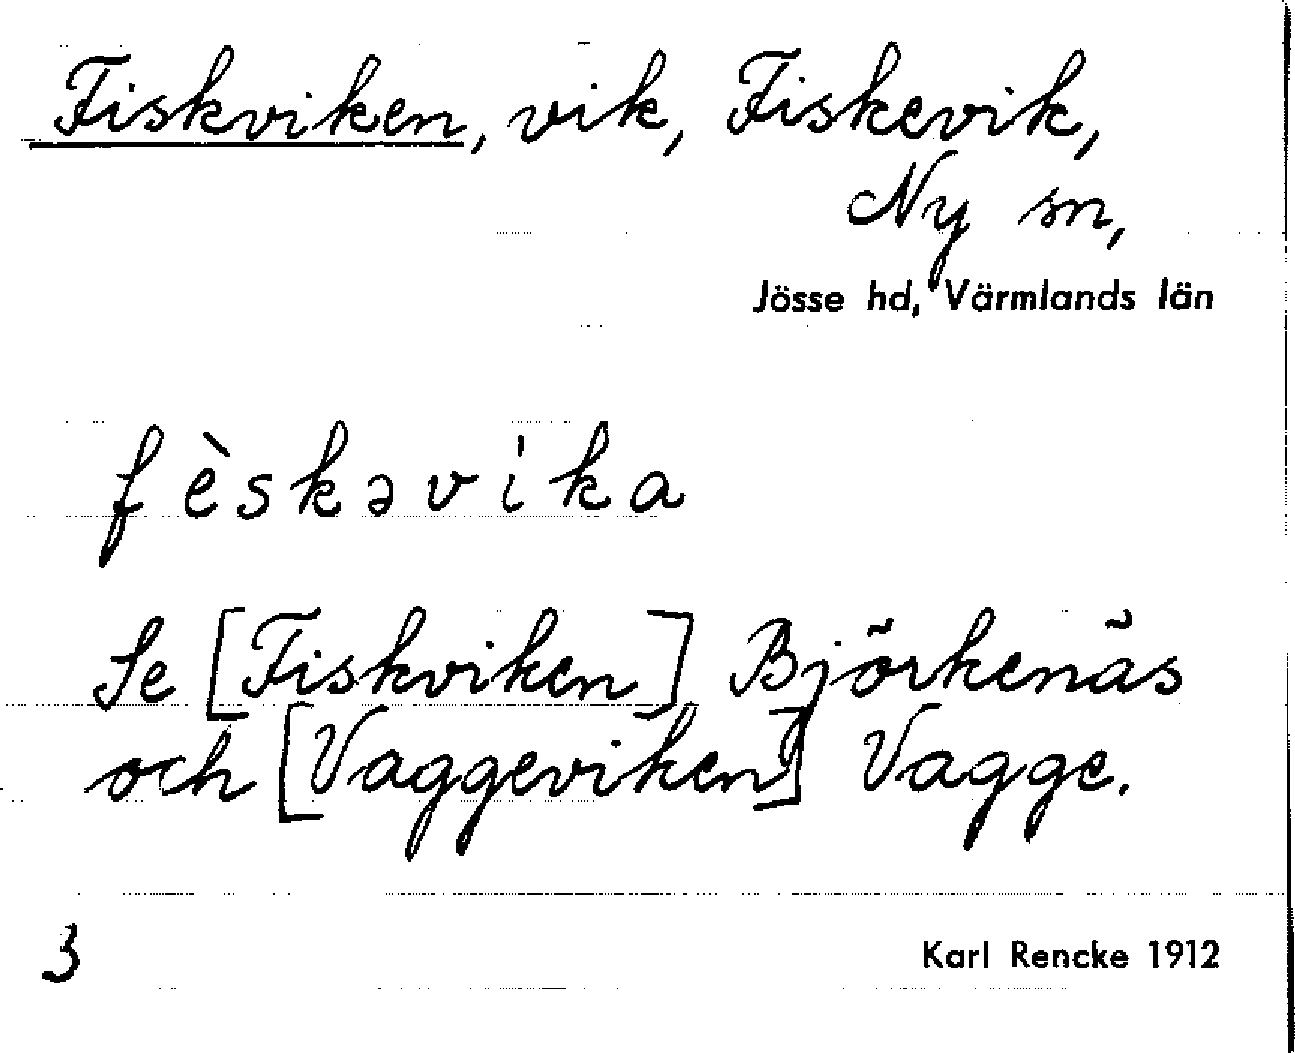 Fiskviken, vik, Fiskevik,
Ny sn,
Jösse hd, Värmlands län
fèskəvika
Se [Fiskviken] Björkenäs
och [Vaggeviken] Vagge.
3
Karl Rencke 1912